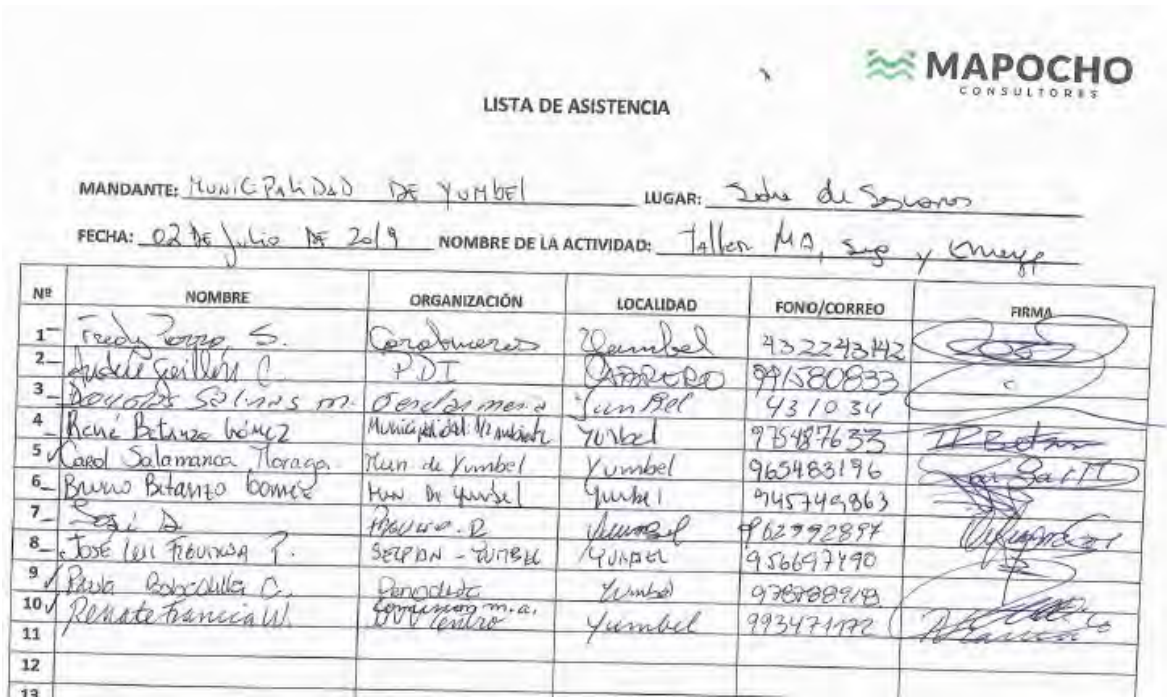 MAPOCHO
CONSULTORES
LISTA DE ASISTENCIA
MANDANTE: MUNICIPALIDAD DE YUMBEL LUGAR: de
FECHA: 02 DE Julio DE 2019 NOMBRE DE LA ACTIVIDAD: Taller MA, y
Nº NOMBRE ORGANIZACIÓN LOCALIDAD FONO/CORREO FIRMA
1 Fredy S. Yumbel 432243142
2 Guillén C. PDI CABRERO 991580833
3 Salinas m. Gendarmeria Yumbel 431034
4 René Betanzo Gómez Municipalidad M Ambiente Yumbel 975487633
5 Carol Salamanca Moraga Mun de Yumbel Yumbel 965483196
6 Bruno Betanzo Gomez Mun. De Yumbel Yumbel 945749863
7 Yumbel 962992897
8 José Luis P. SECPLAN - YUMBEL YUMBEL 956697490
9 Paula Bobadilla C. Periodista Yumbel
10 Renate Francia W. Comision m.a. UVV Centro Yumbel 993471172
11
12
13